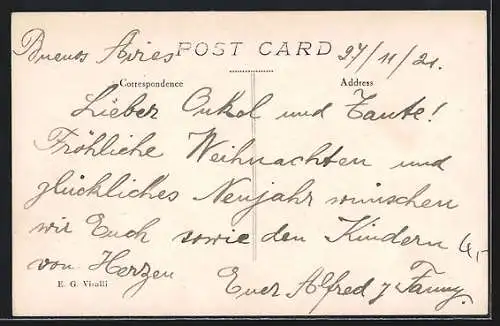 Buenos Aires POST CARD 27/11/21.
Correspondence Address
Lieber Onkel und Tante!
Fröhliche Weihnachten und
glückliches Neujahr wünschen
wir Euch sowie den Kindern
von Herzen Euer Alfred y Fanny.
4,-
E. G. Visalli